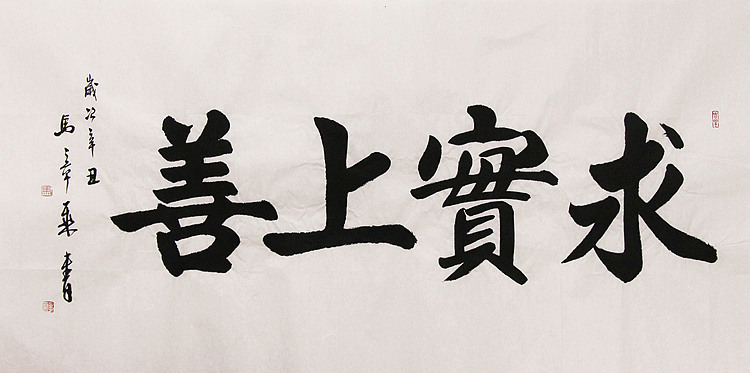 求實上善
歲次辛丑
馬章乘書